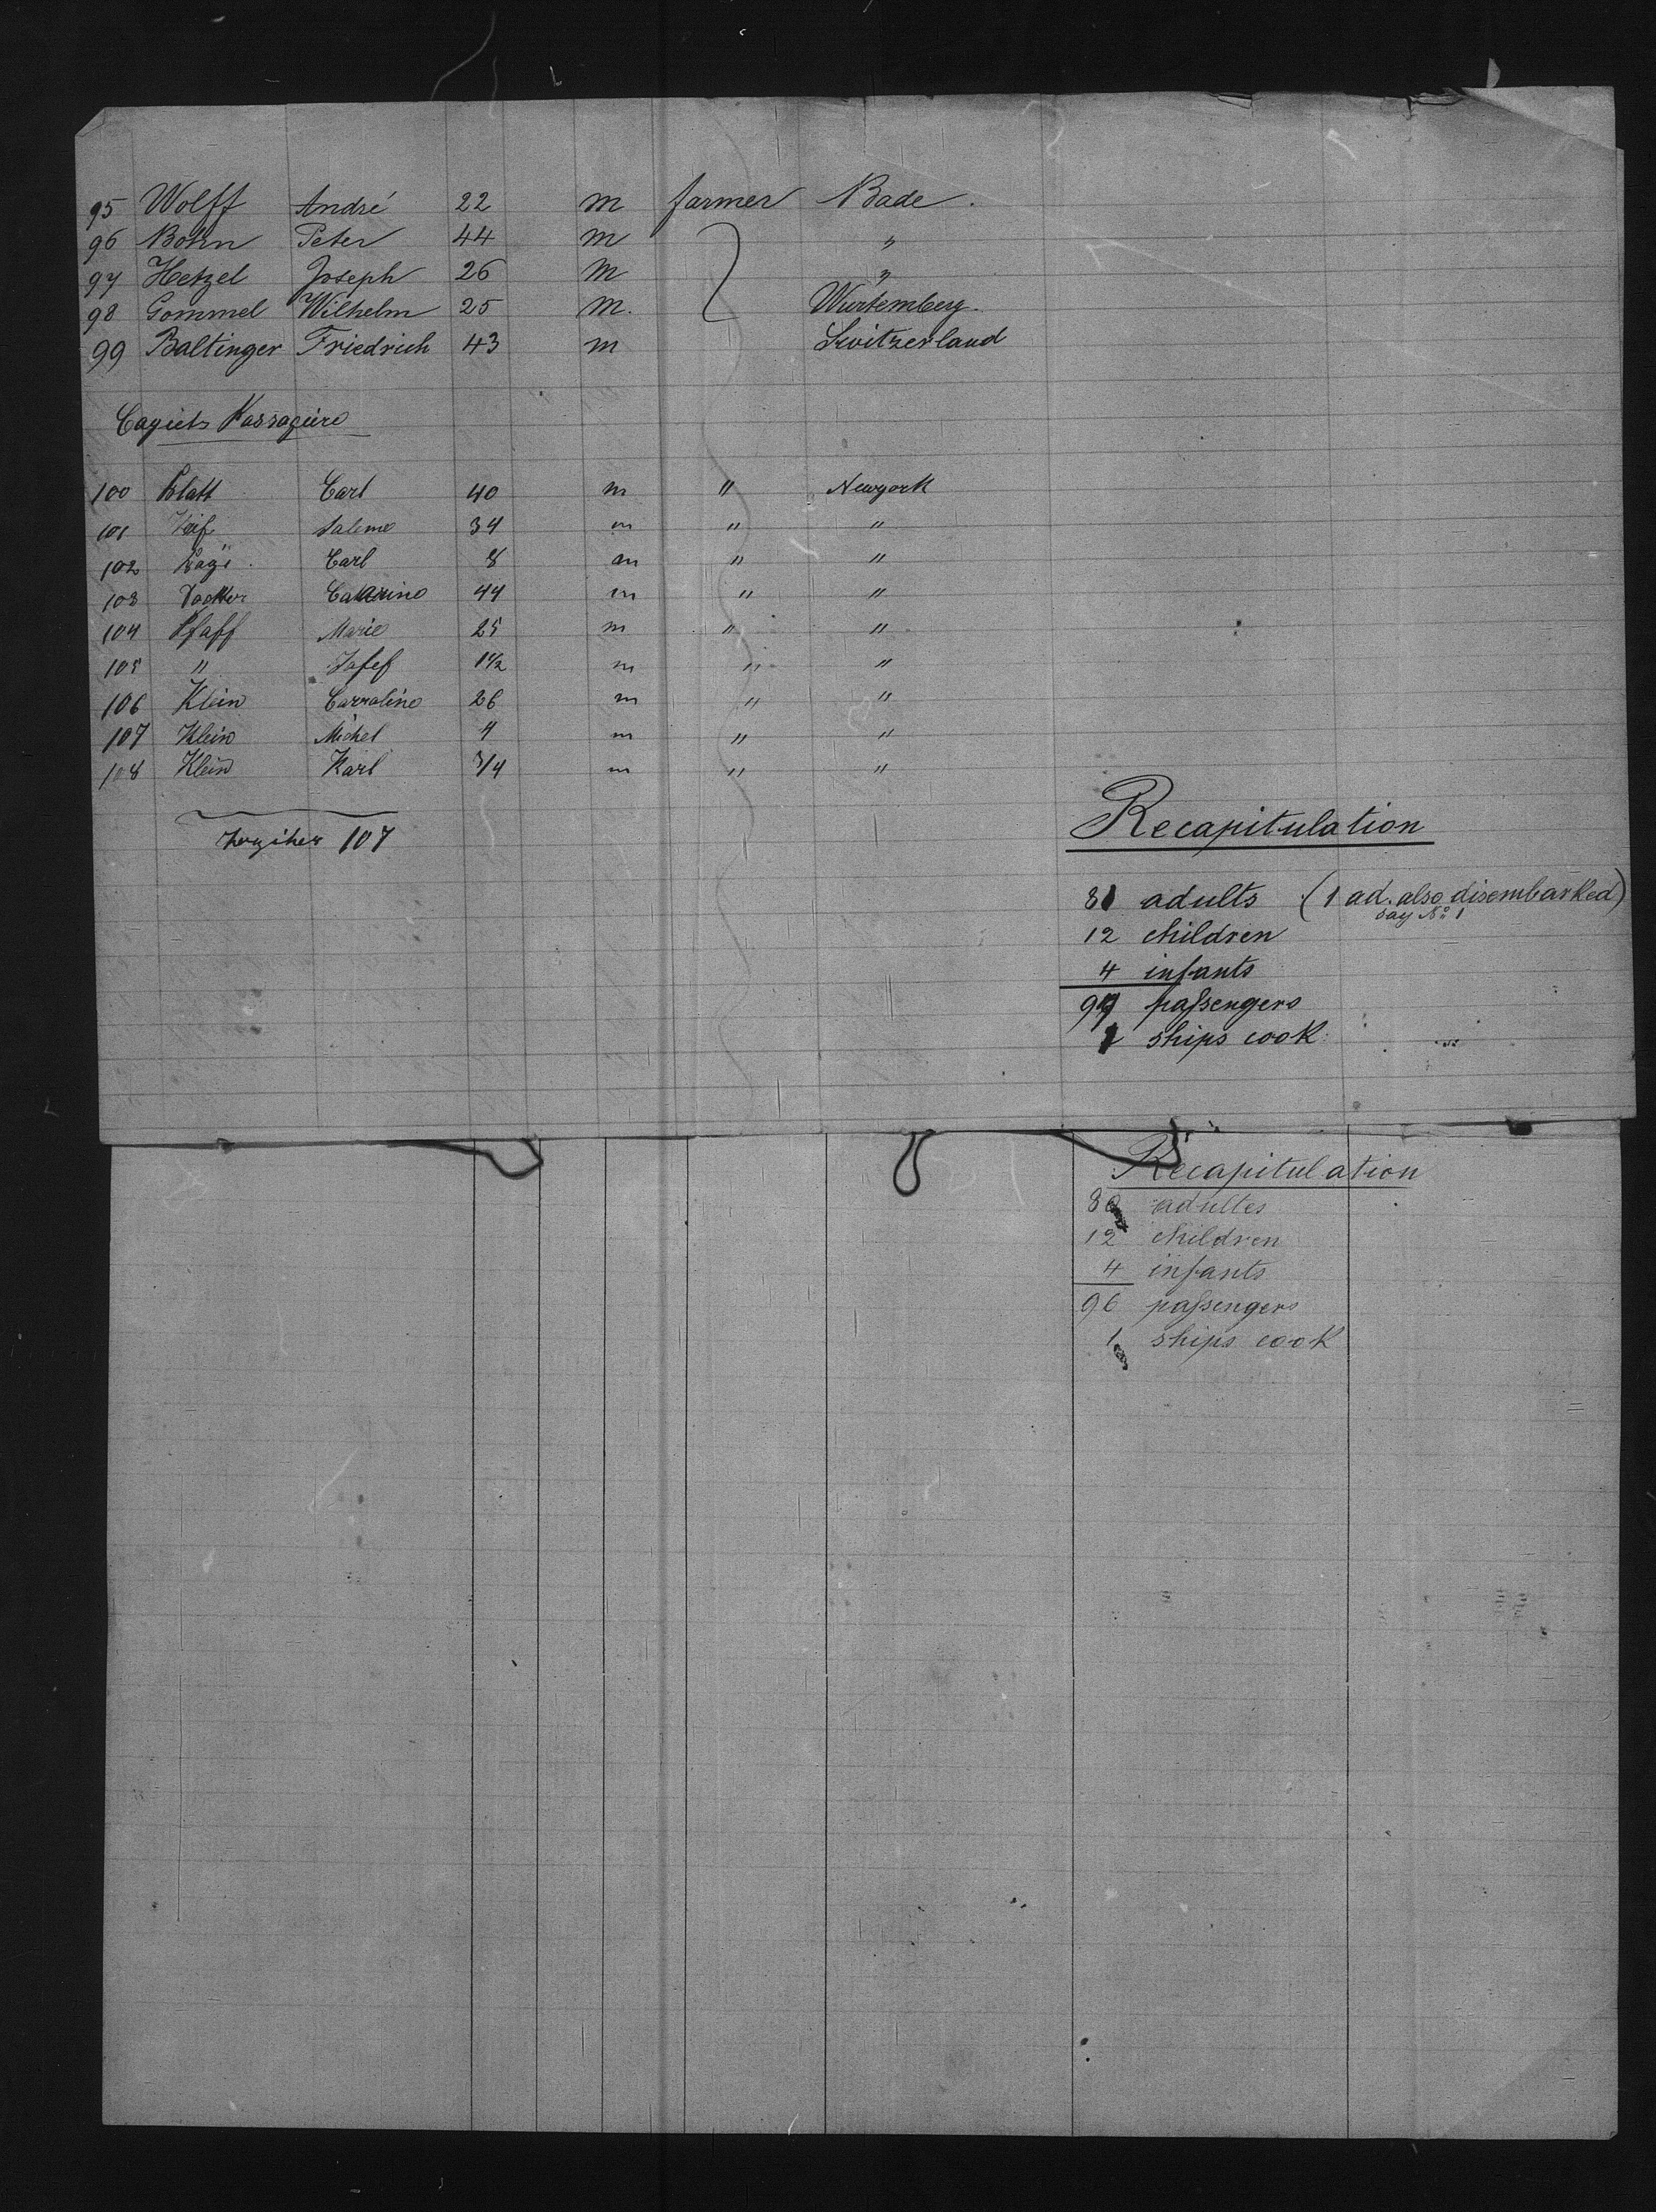 95 Wolff André 22 m farmer Bade.
96 Bohn Peter 44 m "
97 Hetzel Joseph 26 m "
98 Gommel Wilhelm 25 m. Wurtemberg.
99 Baltinger Friedrich 43 m Switzerland
100 Blatt Carl 40 m " Newyork
101 Salome 34 m " "
102 Carl 8 m " "
103 44 m " "
104 Pfaff Marie 25 m " "
105 " Josef 1 1/2 m " "
106 Klein Carroline 26 m " "
107 Klein Michel 4 m " "
108 Klein Karl 3/4 m " "
107
Recapitulation
81 adults (1 ad. also disembarked)
say No 1
12 children
4 infants
97 passengers
1 ships cook
Recapitulation
80 adultes
12 children
4 infants
96 passengers
1 ships cook